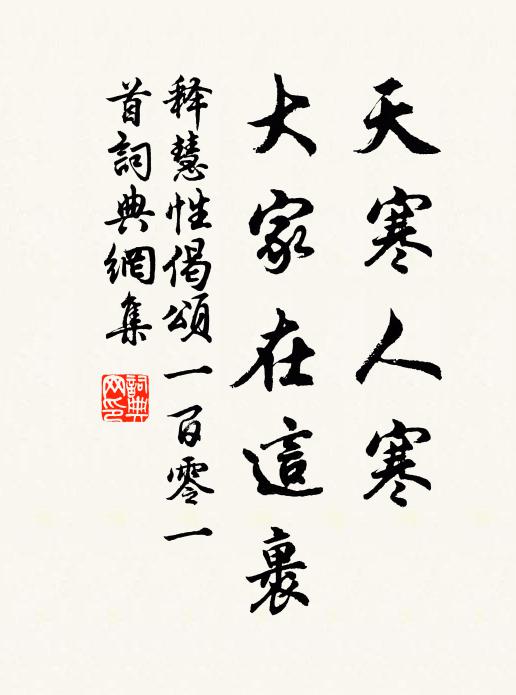 天寒人寒
大家在這裏
释慧性偈頌一百零一
首詞典網集
詞典
网印